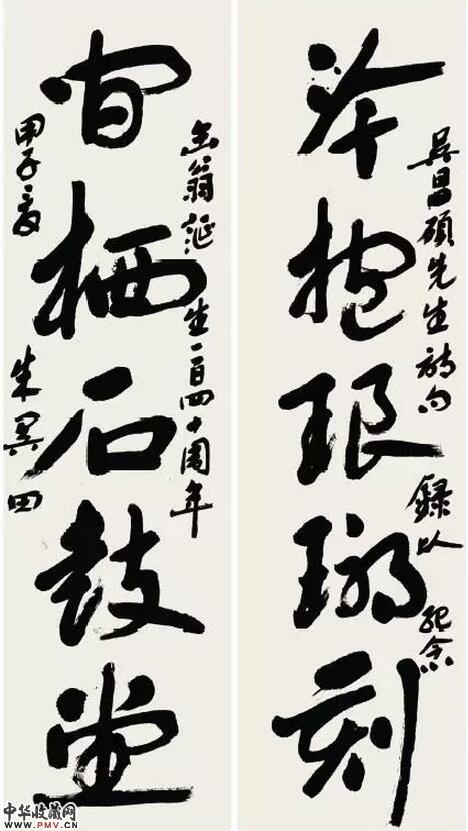 冷抱琅琊刻
吴昌碩先生詩句錄以紀念
間栖石鼓堂
缶翁誕生一百四十周年
甲子夏朱关田
中华收藏网
WWW.PMV.CN